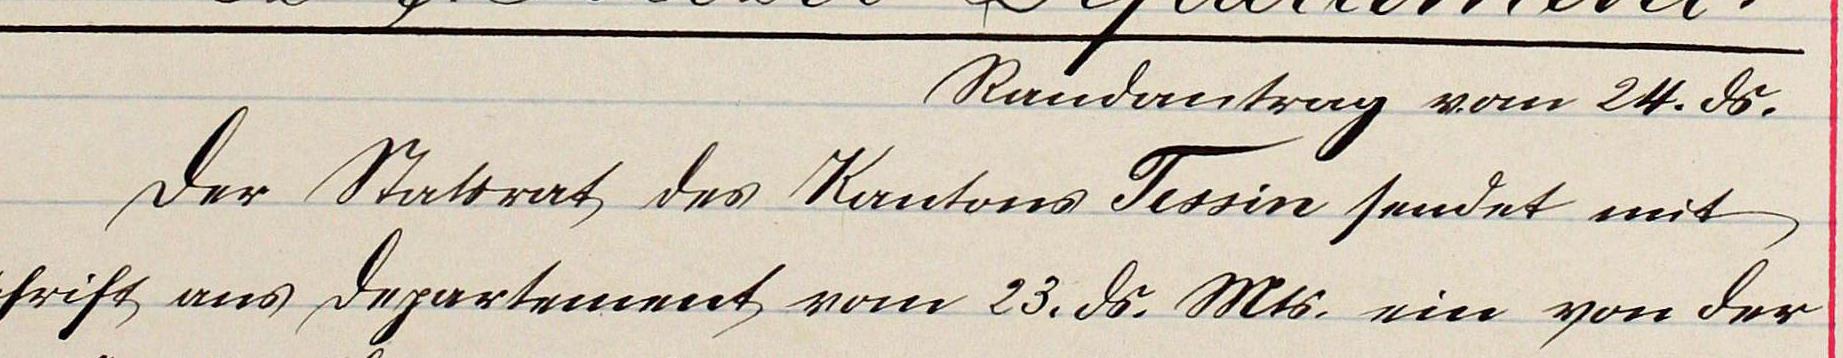 Departement.
Randantrag vom 24. ds.
Der Statsrat des Kantons Tessin sendet mit
schrift ans Departement vom 23. ds. Mts. ein von der